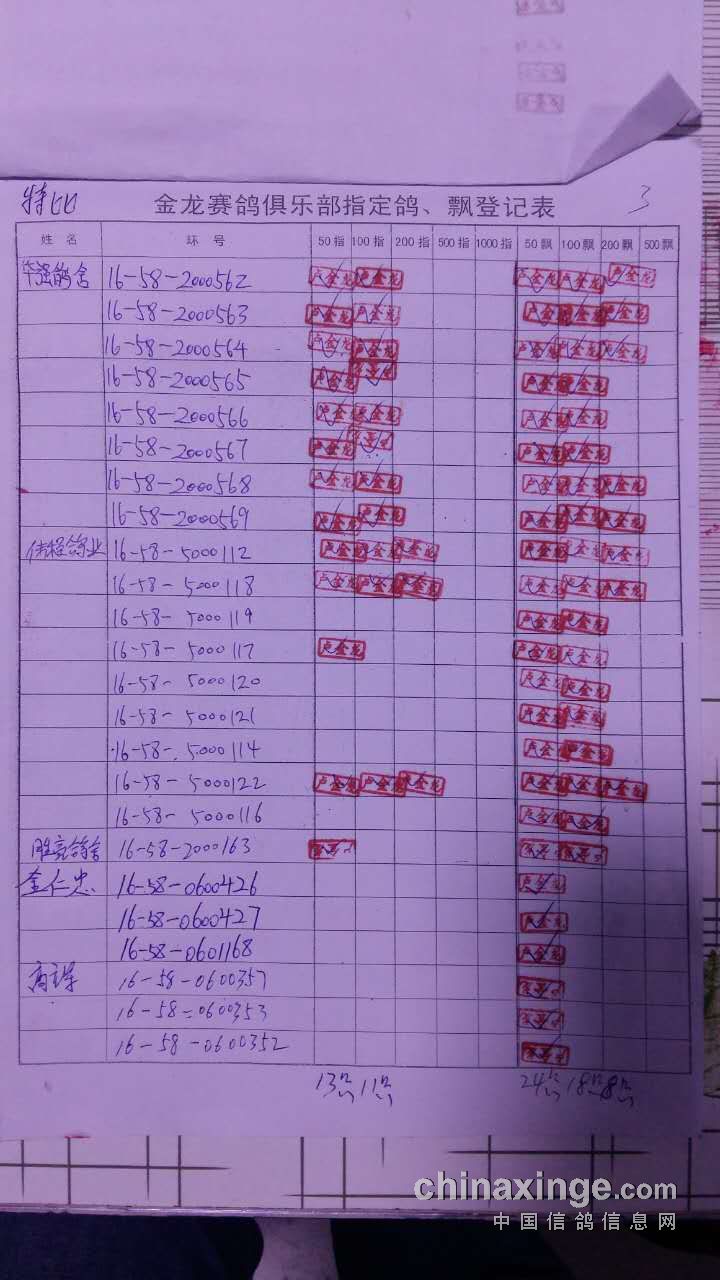 特比
金龙赛鸽俱乐部指定鸽、飘登记表
3
姓名 环号 50指 100指 200指 500指 1000指 50飘 100飘 200飘 500飘
华强鸽舍 16-58-2000562 卢金龙 卢金龙 卢金龙 卢金龙 卢金龙
16-58-2000563 卢金龙 卢金龙 卢金龙 卢金龙 卢金龙
16-58-2000564 卢金龙 卢金龙 卢金龙 卢金龙 卢金龙
16-58-2000565 卢金龙 卢金龙 卢金龙
16-58-2000566 卢金龙 卢金龙 卢金龙 卢金龙
16-58-2000567 卢金龙 卢金龙 卢金龙
16-58-2000568 卢金龙 卢金龙 卢金龙 卢金龙 卢金龙
16-58-2000569 卢金龙 卢金龙 卢金龙 卢金龙 卢金龙
鸽业 16-58-5000112 卢金龙 卢金龙 卢金龙 卢金龙 卢金龙 卢金龙
16-58-5000118 卢金龙 卢金龙 卢金龙 卢金龙 卢金龙 卢金龙
16-58-5000119 卢金龙 卢金龙
16-58-5000117 卢金龙 卢金龙 卢金龙
16-58-5000120 卢金龙 卢金龙
16-58-5000121 卢金龙 卢金龙
16-58-5000114 卢金龙 卢金龙
16-58-5000122 卢金龙 卢金龙 卢金龙 卢金龙 卢金龙 卢金龙
16-58-5000116 卢金龙 卢金龙
胜亮鸽舍 16-58-2000163
金仁忠 16-58-0600426 卢金龙
16-58-0600427 卢金龙
16-58-0601168 卢金龙
16-58-0600357
16-58-0600353
16-58-0600352
13 11 24 18 8
chinaxinge.com
中国信鸽信息网